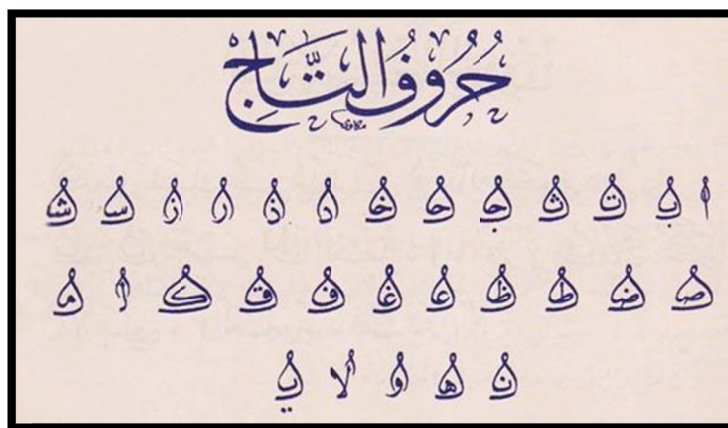 حُرُوفُ التَّاجِ
ا ب ت ث ج ح خ د ذ ر ز س ش
ص ض ط ظ ع غ ف ق ك ل م
ن ه و لا ي